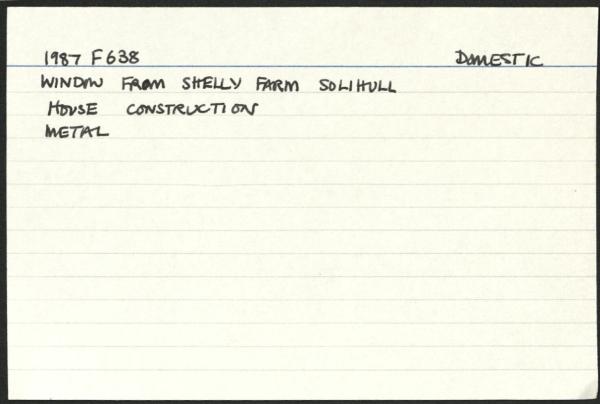 1987 F638 DOMESTIC
WINDOW FROM SHELLY FARM SOLIHULL
HOUSE CONSTRUCTION
METAL